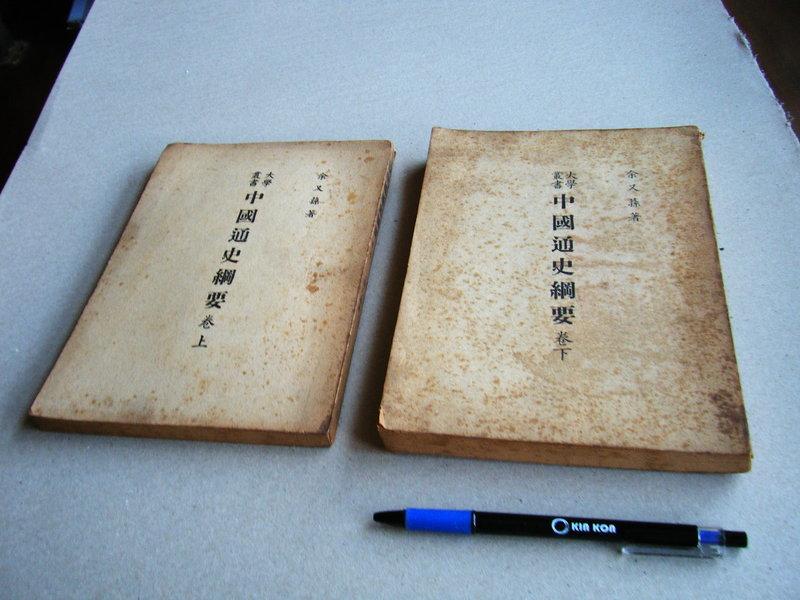 余又蓀著
大學叢書
中國通史綱要 卷上
余又蓀著
大學叢書
中國通史綱要 卷下
KIN KON